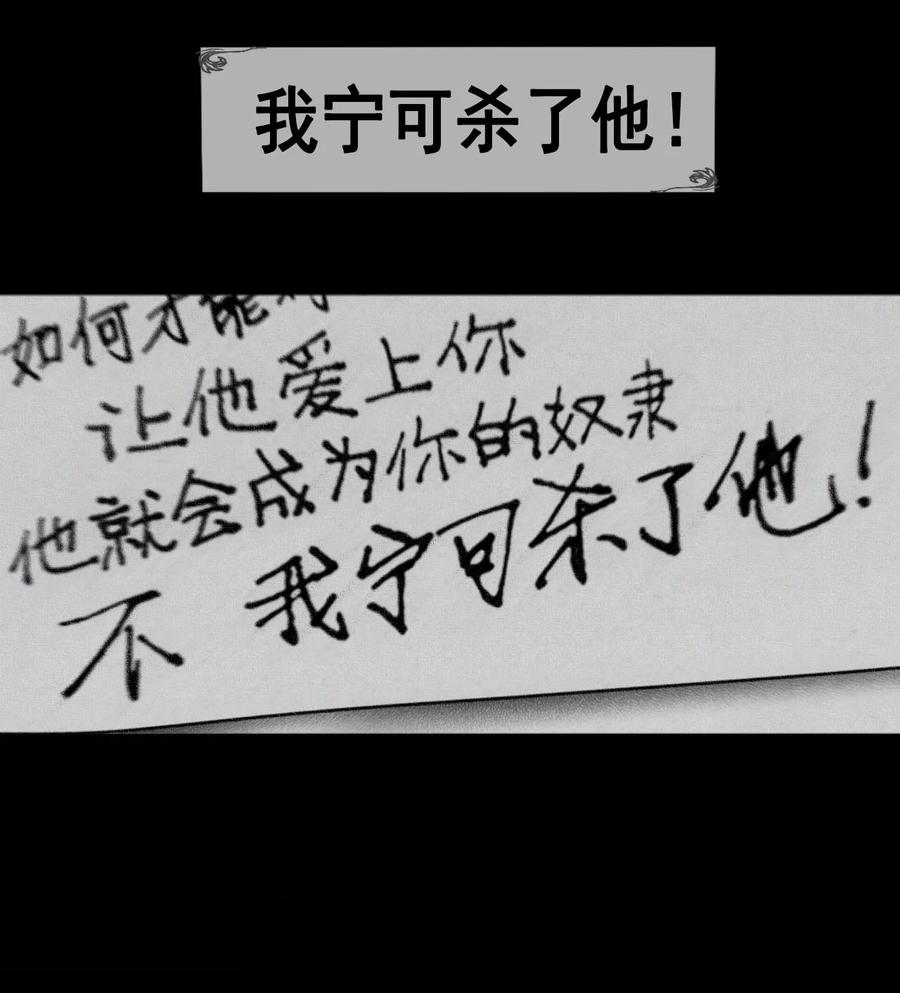 我宁可杀了他!
如何才能
让他爱上你
他就会成为你的奴隶
不 我宁可杀了他!